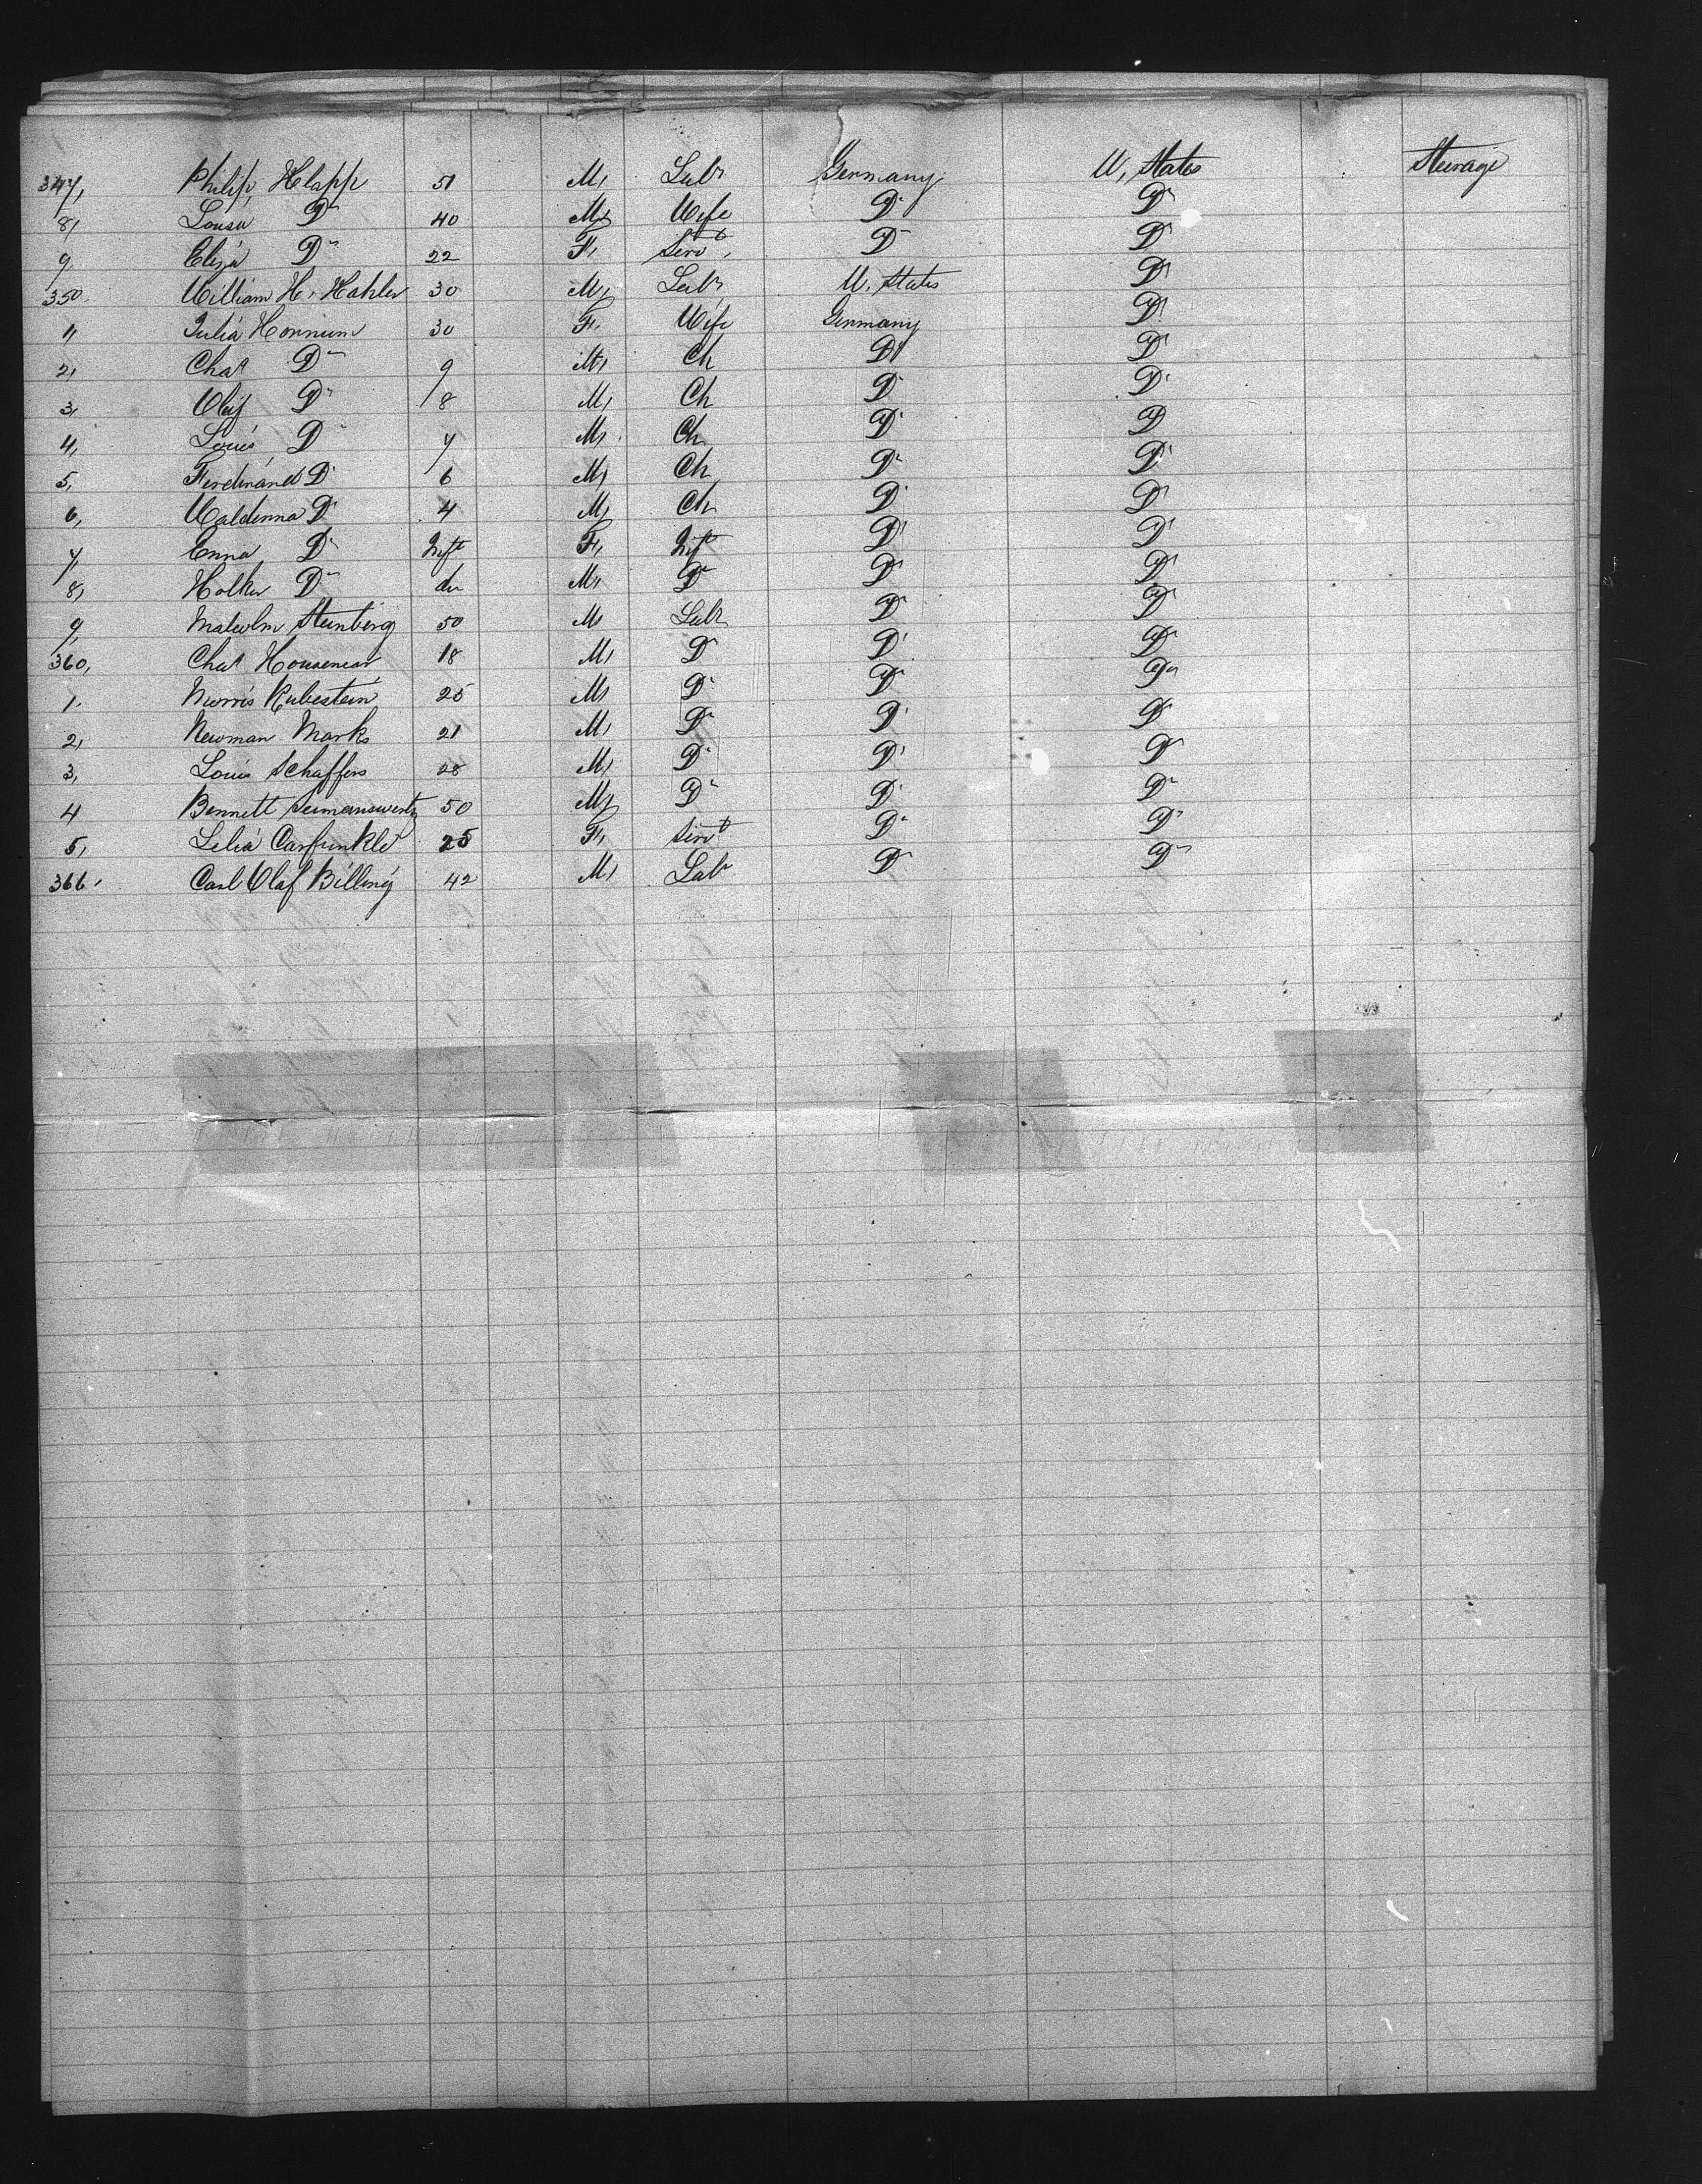 347, Philip, Klapp 51 M, Labr Germany U, States Steerage
8, Louisa Do 40 M, Wife Do Do
9, Eliza Do 22 F, Servt, Do Do
350. William H. Hahler 30 M, Labr U. States Do
1, Julia Hornium 30 F. Wife Germany Do
2, Chas Do 9 M, Ch Do Do
3, Olaf Do 8 M, Ch Do Do
4, Louis Do 7 M, Ch Do Do
5, Ferdinand Do 6 M, Ch Do Do
6, Waldinna Do 4 M, Ch Do Do
7, Enna Do Inft F, Inft Do Do
8, Holker Do do M, Do Do Do
9, Malcolm Steinberg 50 M Labr Do Do
360, Chas 18 M, Do Do Do
1. Morris Rubestein 25 M, Do Do Do
2, Newman Marks 21 M, Do Do Do
3, Louis Schaffers 28 M, Do Do Do
4 Bennett 50 M, Do Do Do
5, Lelia Carfunkle 25 F, Servt Do Do
366, Carl Olaf Billing 42 M, Labr Do Do